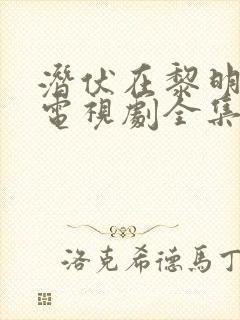 潛伏在黎明
電視劇全集
洛克希德馬丁